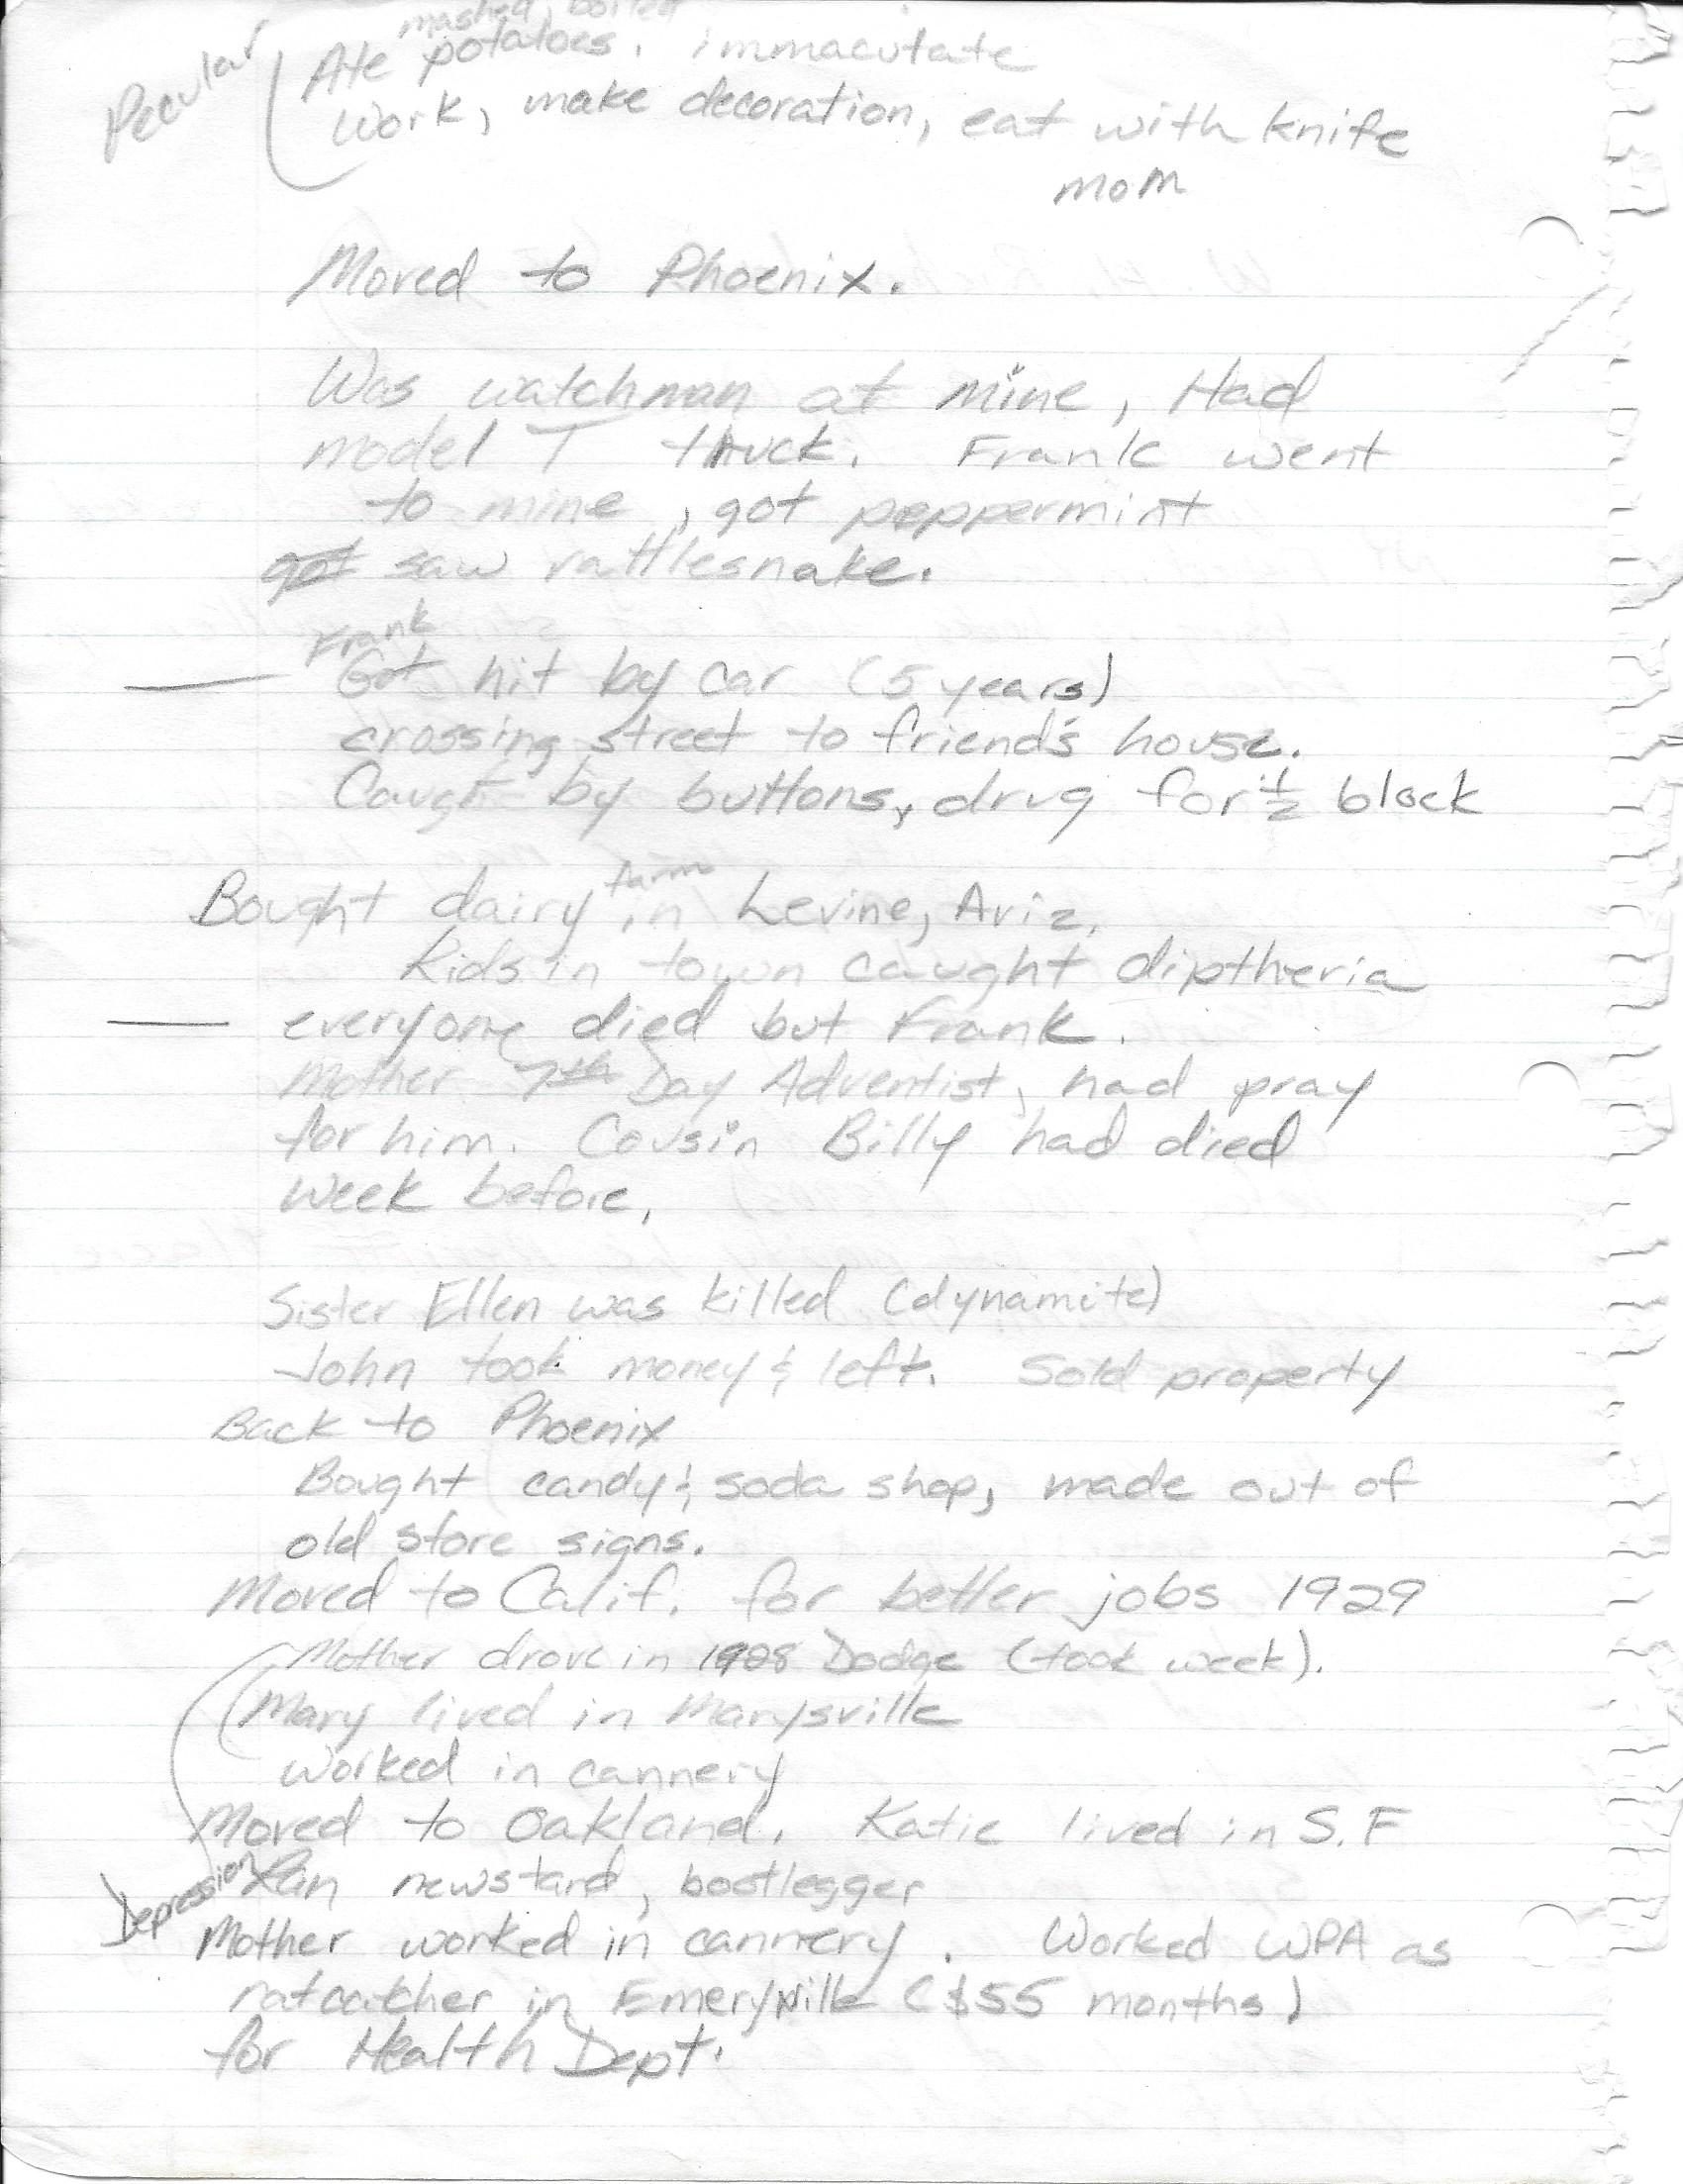 mashed, boiled
Pecular
Ate potatoes. immaculate
work, make decoration, eat with knife
mom
Moved to Phoenix.
Was watchman at mine, Had
model T truck. Frank went
to mine, got peppermint
got saw rattlesnake.
Frank
Got hit by car (5 years)
crossing street to friend's house.
Caught by buttons, drug for 1/2 block
farm
Bought dairy in Levine, Ariz.
Kids in town caught diptheria
everyone died but Frank.
Mother 7th Day Adventist, had pray
for him. Cousin Billy had died
week before,
Sister Ellen was killed (dynamite)
John took money & left. Sold property
Back to Phoenix
Bought candy & soda shop, made out of
old store signs.
Moved to Calif. for better jobs 1929
Mother drove in 1928 Dodge (took week).
Mary lived in Marysville
worked in cannery
Moved to Oakland. Katie lived in S.F
Depression
Ran newstand, bootlegger
Mother worked in cannery. Worked WPA as
ratcatcher in Emeryville ($55 months)
for Health Dept.